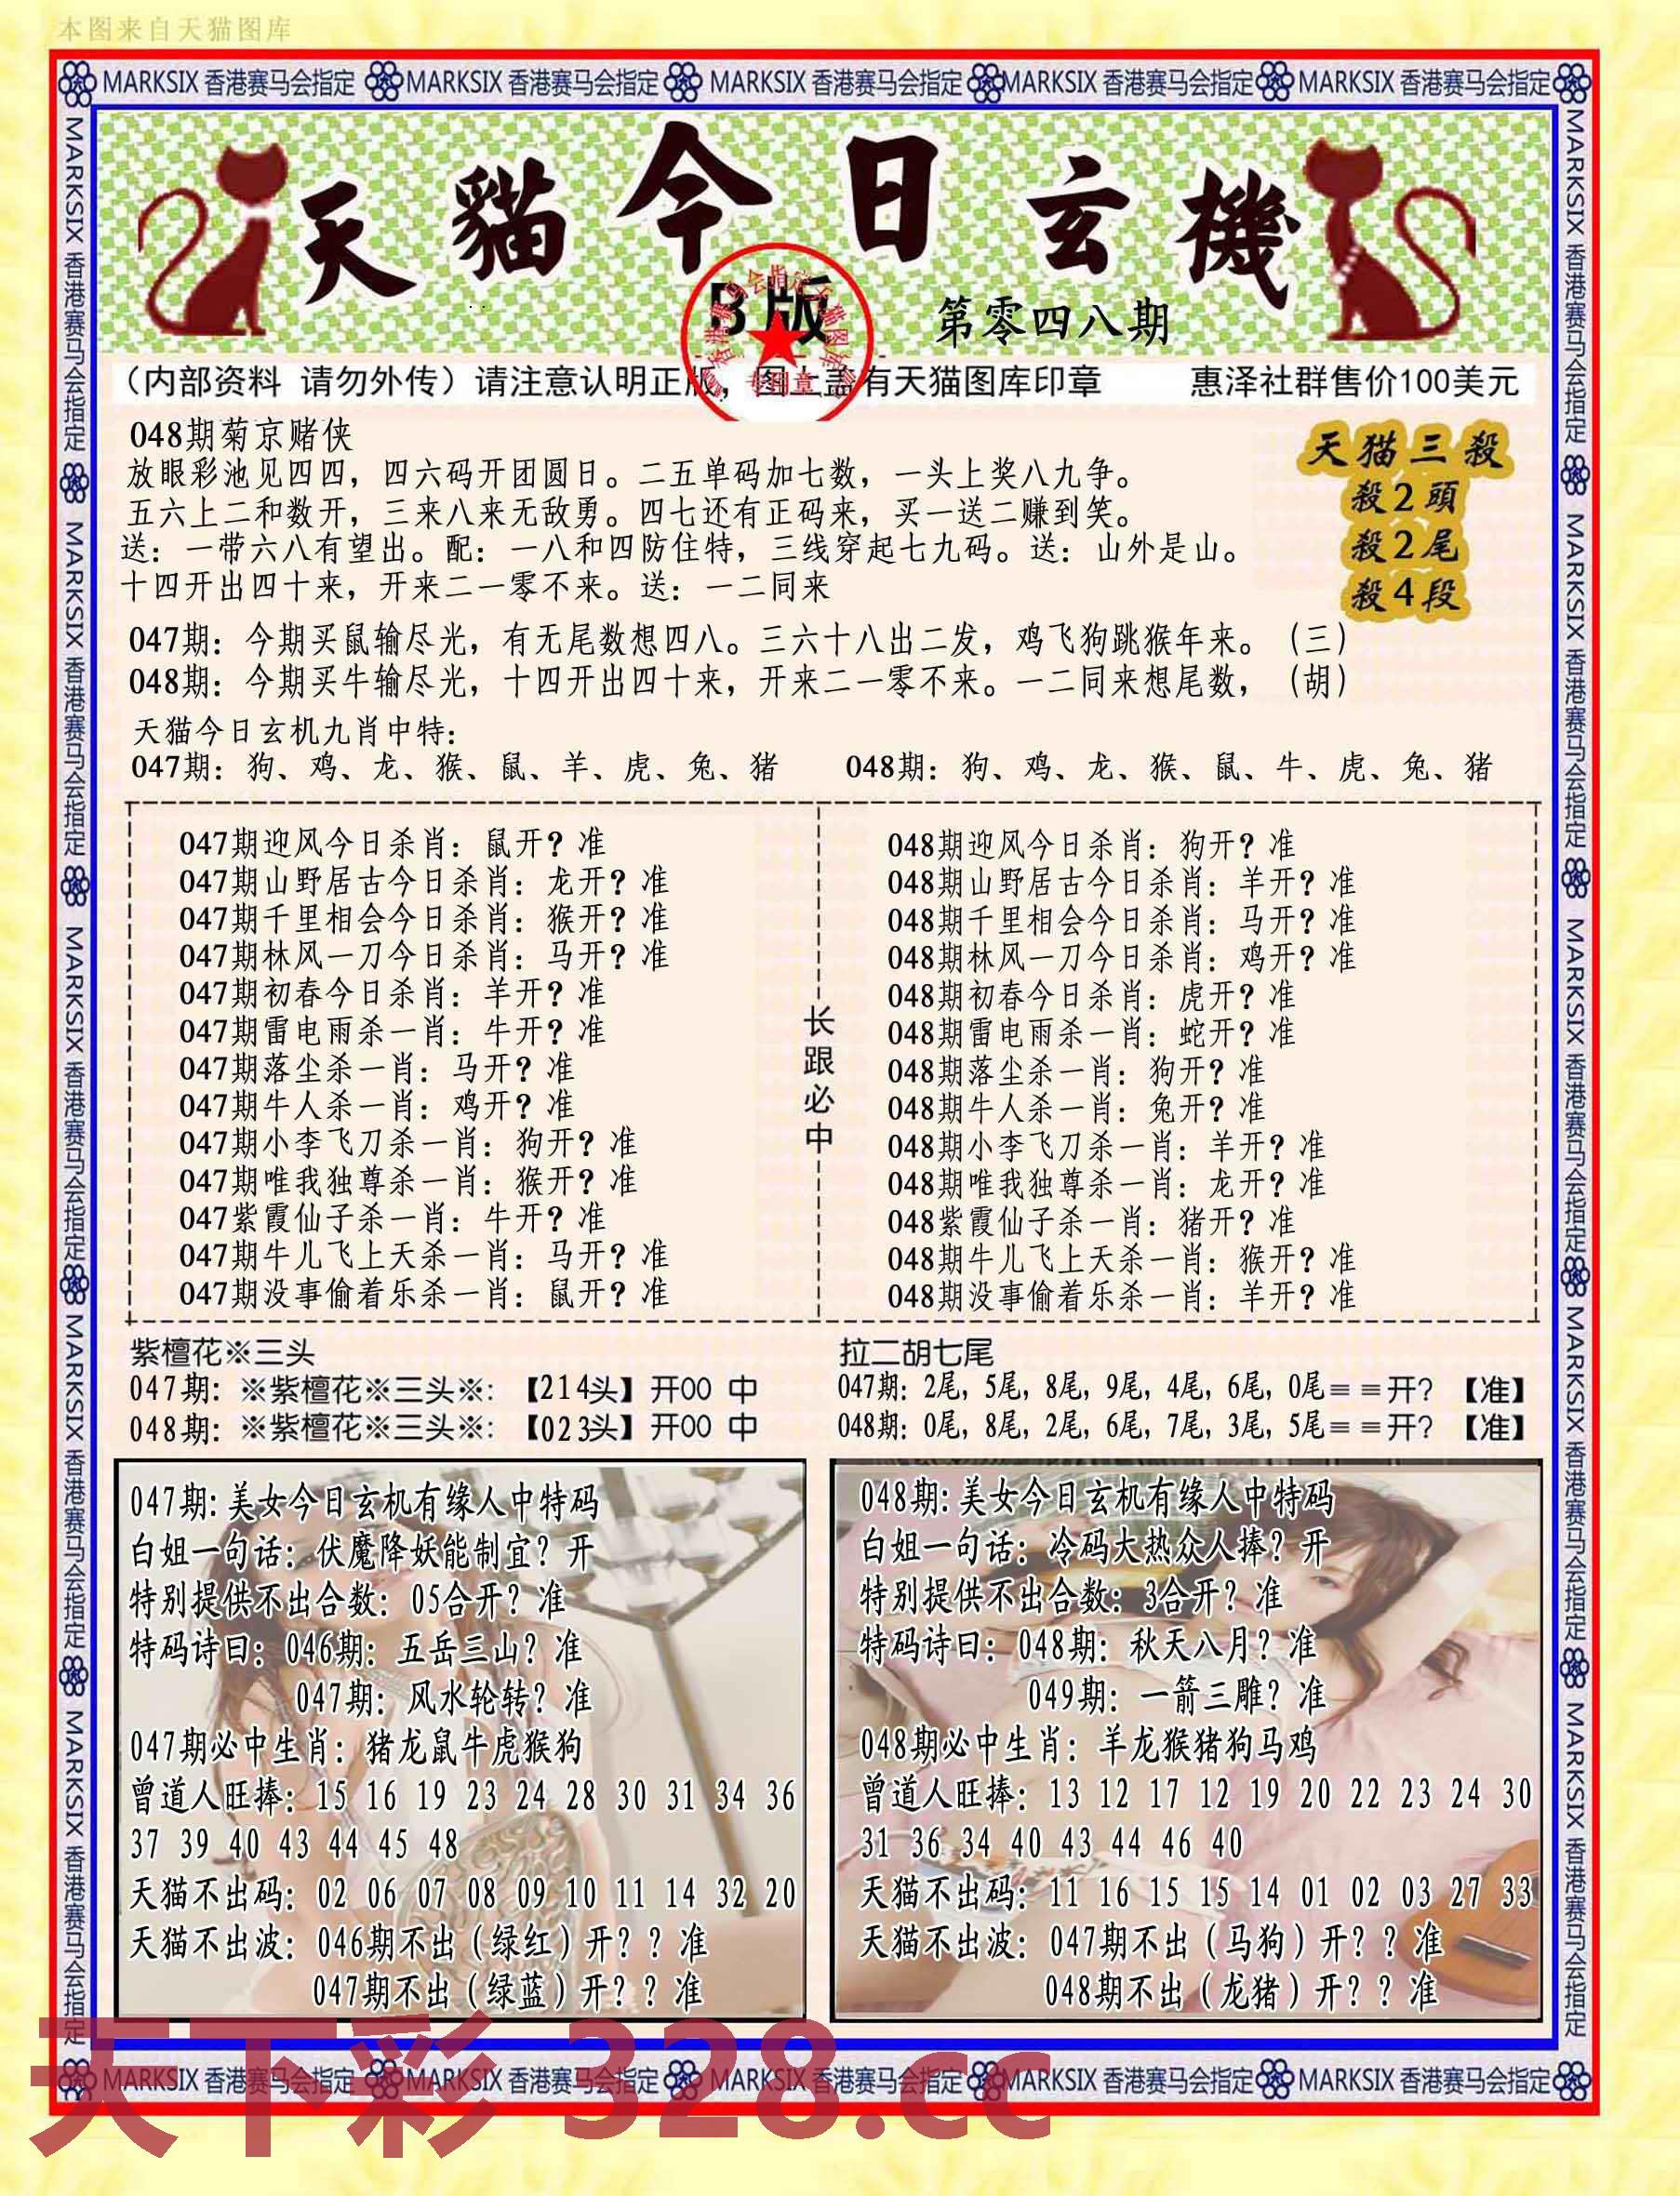 本图来自天猫图库
MARKSIX 香港赛马会指定 MARKSIX 香港赛马会指定 MARKSIX 香港赛马会指定 MARKSIX 香港赛马会指定 MARKSIX 香港赛马会指定
天貓今日玄機
B版
第零四八期
(内部资料 请勿外传)请注意认明正版,图上盖有天猫图库印章 惠泽社群售价100美元
专用章
048期菊京赌侠
放眼彩池见四四,四六码开团圆日。二五单码加七数,一头上奖八九争。
五六上二和数开,三来八来无敌勇。四七还有正码来,买一送二赚到笑。
送:一带六八有望出。配:一八和四防住特,三线穿起七九码。送:山外是山。
十四开出四十来,开来二一零不来。送:一二同来
天猫三殺
殺2頭
殺2尾
殺4段
047期:今期买鼠输尽光,有无尾数想四八。三六十八出二发,鸡飞狗跳猴年来。(三)
048期:今期买牛输尽光,十四开出四十来,开来二一零不来。一二同来想尾数,(胡)
天猫今日玄机九肖中特:
047期:狗、鸡、龙、猴、鼠、羊、虎、兔、猪 048期:狗、鸡、龙、猴、鼠、牛、虎、兔、猪
047期迎风今日杀肖:鼠开?准
047期山野居古今日杀肖:龙开?准
047期千里相会今日杀肖:猴开?准
047期林风一刀今日杀肖:马开?准
047期初春今日杀肖:羊开?准
047期雷电雨杀一肖:牛开?准
047期落尘杀一肖:马开?准
047期牛人杀一肖:鸡开?准
047期小李飞刀杀一肖:狗开?准
047期唯我独尊杀一肖:猴开?准
047紫霞仙子杀一肖:牛开?准
047期牛儿飞上天杀一肖:马开?准
047期没事偷着乐杀一肖:鼠开?准
长跟必中
048期迎风今日杀肖:狗开?准
048期山野居古今日杀肖:羊开?准
048期千里相会今日杀肖:马开?准
048期林风一刀今日杀肖:鸡开?准
048期初春今日杀肖:虎开?准
048期雷电雨杀一肖:蛇开?准
048期落尘杀一肖:狗开?准
048期牛人杀一肖:兔开?准
048期小李飞刀杀一肖:羊开?准
048期唯我独尊杀一肖:龙开?准
048紫霞仙子杀一肖:猪开?准
048期牛儿飞上天杀一肖:猴开?准
048期没事偷着乐杀一肖:羊开?准
紫檀花※三头
047期:※紫檀花※三头※:【214头】开00 中
048期:※紫檀花※三头※:【023头】开00 中
拉二胡七尾
047期:2尾,5尾,8尾,9尾,4尾,6尾,0尾==开?【准】
048期:0尾,8尾,2尾,6尾,7尾,3尾,5尾==开?【准】
047期:美女今日玄机有缘人中特码
白姐一句话:伏魔降妖能制宜?开
特别提供不出合数:05合开?准
特码诗曰:046期:五岳三山?准
047期:风水轮转?准
047期必中生肖:猪龙鼠牛虎猴狗
曾道人旺捧:15 16 19 23 24 28 30 31 34 36
37 39 40 43 44 45 48
天猫不出码:02 06 07 08 09 10 11 14 32 20
天猫不出波:046期不出(绿红)开??准
047期不出(绿蓝)开??准
048期:美女今日玄机有缘人中特码
白姐一句话:冷码大热众人捧?开
特别提供不出合数:3合开?准
特码诗曰:048期:秋天八月?准
049期:一箭三雕?准
048期必中生肖:羊龙猴猪狗马鸡
曾道人旺捧:13 12 17 12 19 20 22 23 24 30
31 36 34 40 43 44 46 40
天猫不出码:11 16 15 15 14 01 02 03 27 33
天猫不出波:047期不出(马狗)开??准
048期不出(龙猪)开??准
MARKSIX 香港赛马会指定 MARKSIX 香港赛马会指定 MARKSIX 香港赛马会指定 MARKSIX 香港赛马会指定 MARKSIX 香港赛马会指定
MARKSIX 香港赛马会指定 MARKSIX 香港赛马会指定 MARKSIX 香港赛马会指定 MARKSIX 香港赛马会指定 MARKSIX 香港赛马会指定
MARKSIX 香港赛马会指定 MARKSIX 香港赛马会指定 MARKSIX 香港赛马会指定 MARKSIX 香港赛马会指定 MARKSIX 香港赛马会指定
天下彩 328.cc